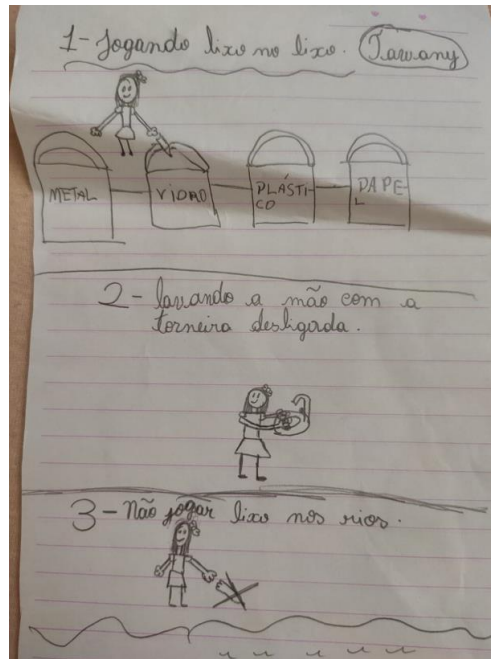 1 - Jogando lixo no lixo. Tawany
METAL VIDRO PLÁSTI- PAPE-
CO L
2 - lavando a mão com a
torneira desligada.
3 - Não jogar lixo nos rios.